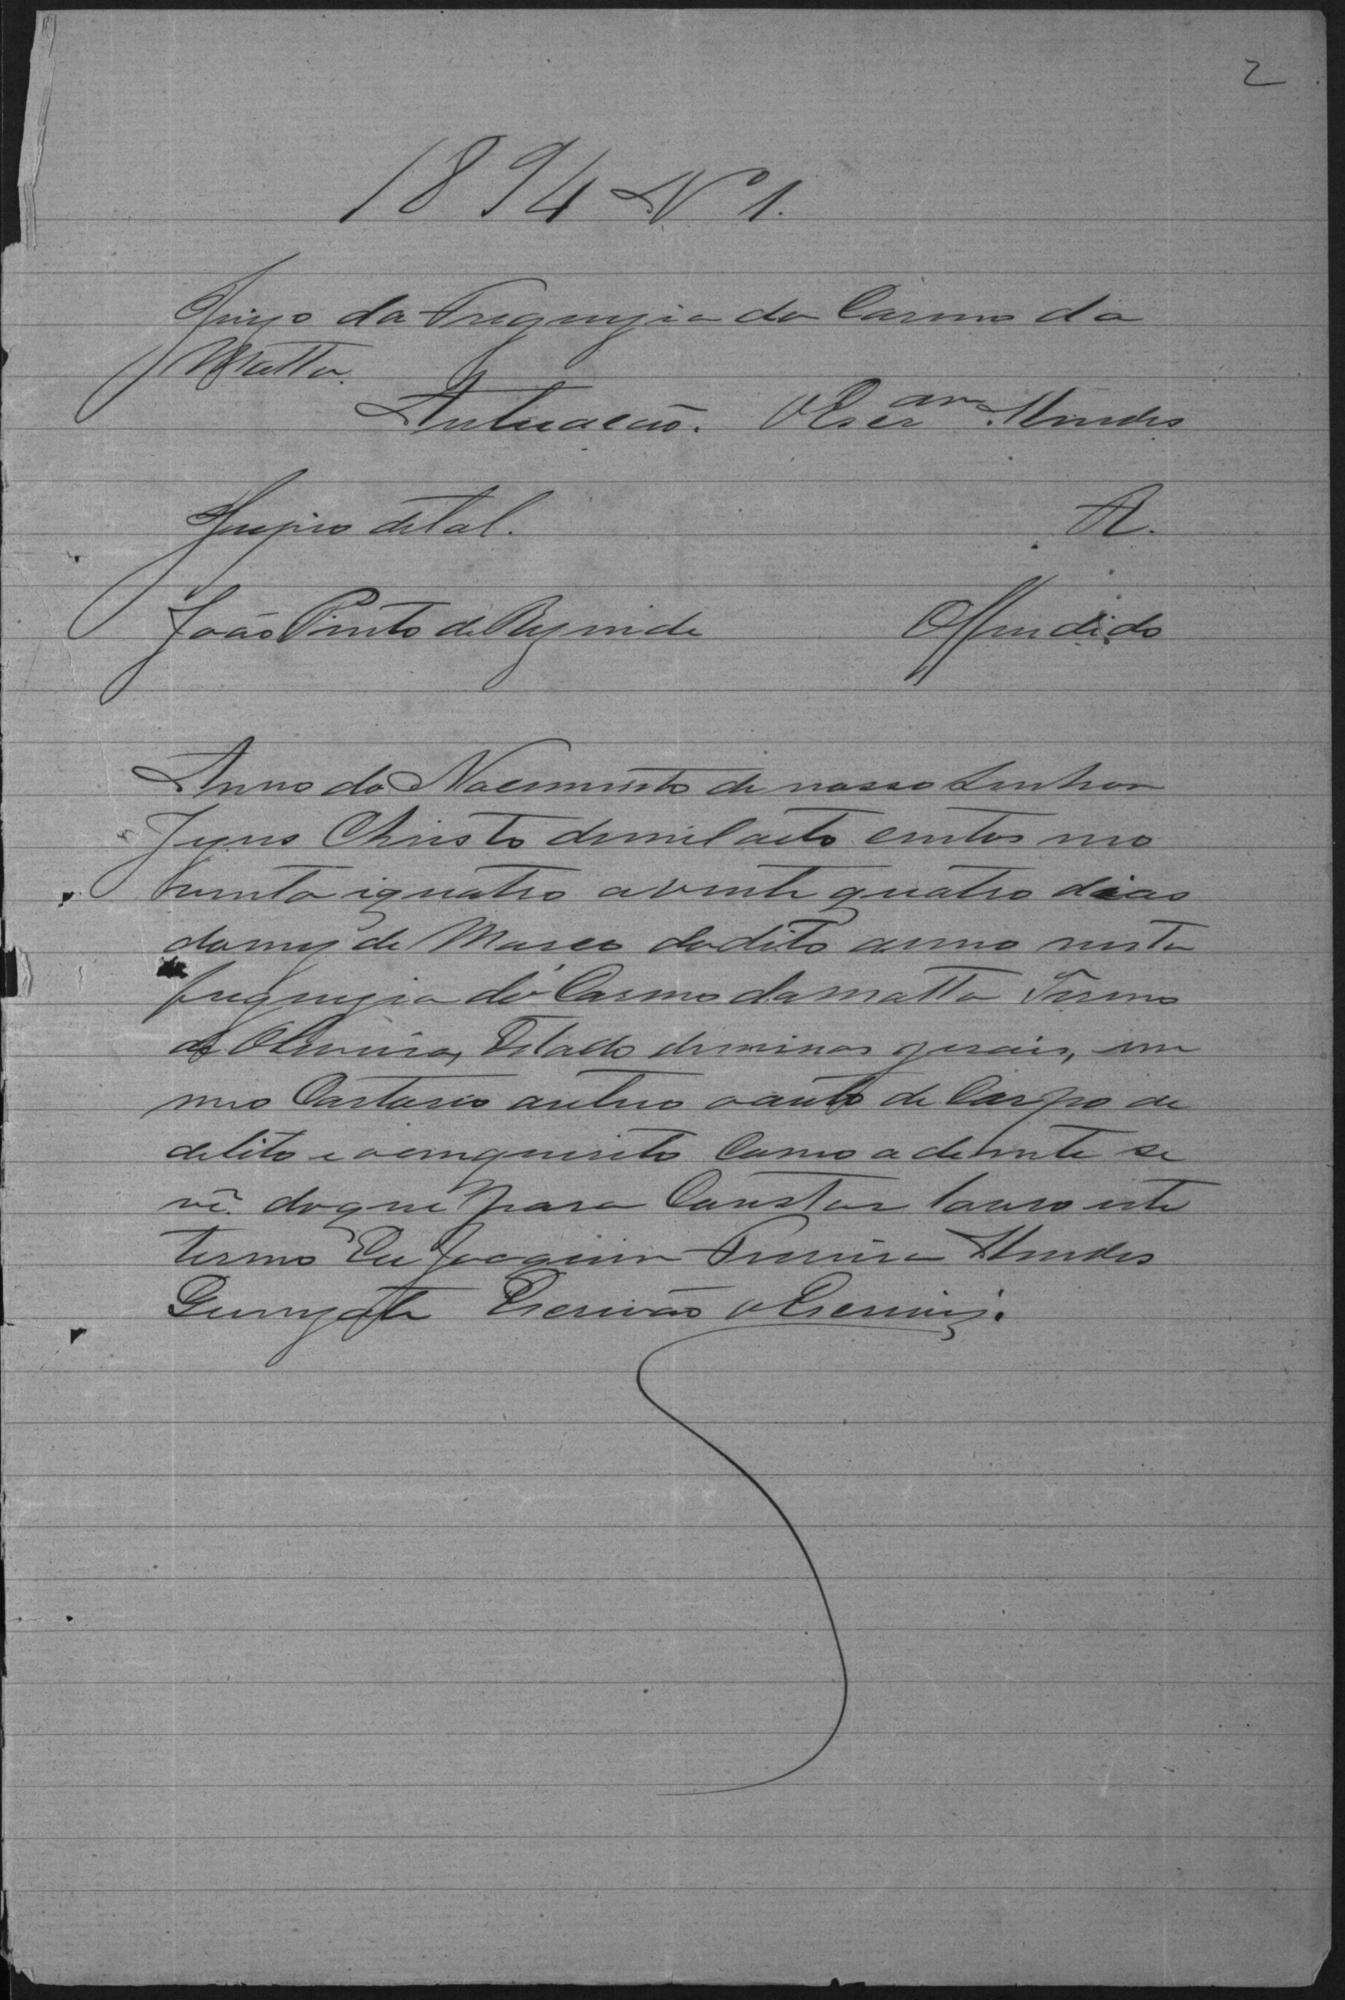 2
1894 Nº 1.
Juizo da Freguezia do Carmo da
Matta.
Autuacão. O Escr.am Mendes
de tal. R.
João Pinto de Rezende Offendido
Anno do Nacimento de nosso Senhor
Jezus Christo de mil oito centos no
venta i quatro a vinte quatro dias
do mez de Marco do dito anno nesta
freguezia do Carmo da Matta Termo
de Oliveira, Estado de minas gerais, em
meo Cartorio autuo o auto de Corpo de
delito e o emquerito Como adeinte se
vê. do que para Constar lavro este
termo Eu Joaquim Ferreira Mendes
Escrivão o Escrivi.